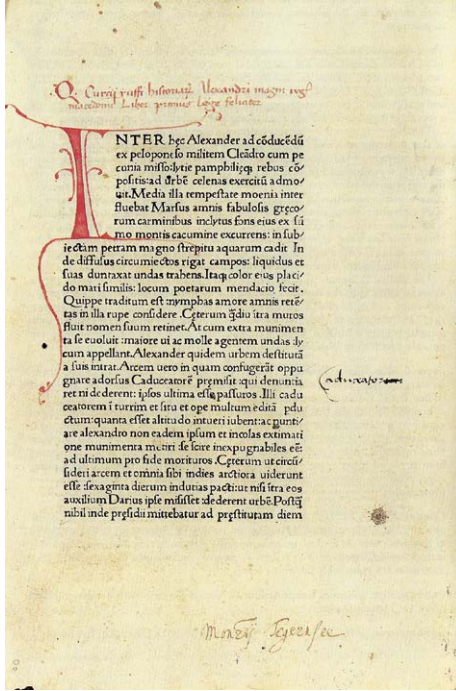 Q. Curtii ruffi historiarum Alexandri magni regis
macedonum Liber primus Lege feliciter
INTER hęc Alexander ad cōducēdū
ex peloponeso militem Cleādro cum pe
cunia misso:lytię pamphilięq; rebus cō/
positis:ad ūrbē celenas exercitū admo/
uit.Media illa tempestate moenia inter
fluebat Marsus amnis fabulosis gręco/
rum carminibus inclytus fons eius ex sū
mo montis cacumine excurrens: in sub/
iectam petram magno strepitu aquarum cadit In
de diffusus circumiectos rigat campos: liquidus et
suas duntaxat undas trahens.Itaq; color eius placi/
do mari similis: locum poetarum mendacio fecit.
Quippe traditum est nymphas amore amnis retē/
tas in illa rupe considere .Cęterum q̄diu ītra muros
fluit nomen suum retinet.At cum extra munimen
ta se euoluit :maiore ui ac molle agentem undas :ly
cum appellant.Alexander quidem urbem destitutā
a suis intrat.Arcem uero in quam confugerāt oppu
gnare adorsus Caduceatorē pręmisit :qui denuncia
ret ni dederent: ipsos ultima esse passuros .Illi cadu
ceatorem ī turrim et situ et ope multum editā pdu
ctum:quanta esset altitudo intueri iubent:ac nunti/
are alexandro non eadem ipsum et incolas extimati
one munimenta metiri :se scire inexpugnabiles eē:
ad ultimum pro fide morituros .Cęterum ut circū/
sideri arcem et omnia sibi indies arctiora uiderunt
esse :sexaginta dierum indutias pacti:ut nisi ītra eos
auxilium Darius ipse misisset :dederent urbē.Postq̄
nihil inde pręsidii mittebatur ad pręstitutam diem
Caduceatorem